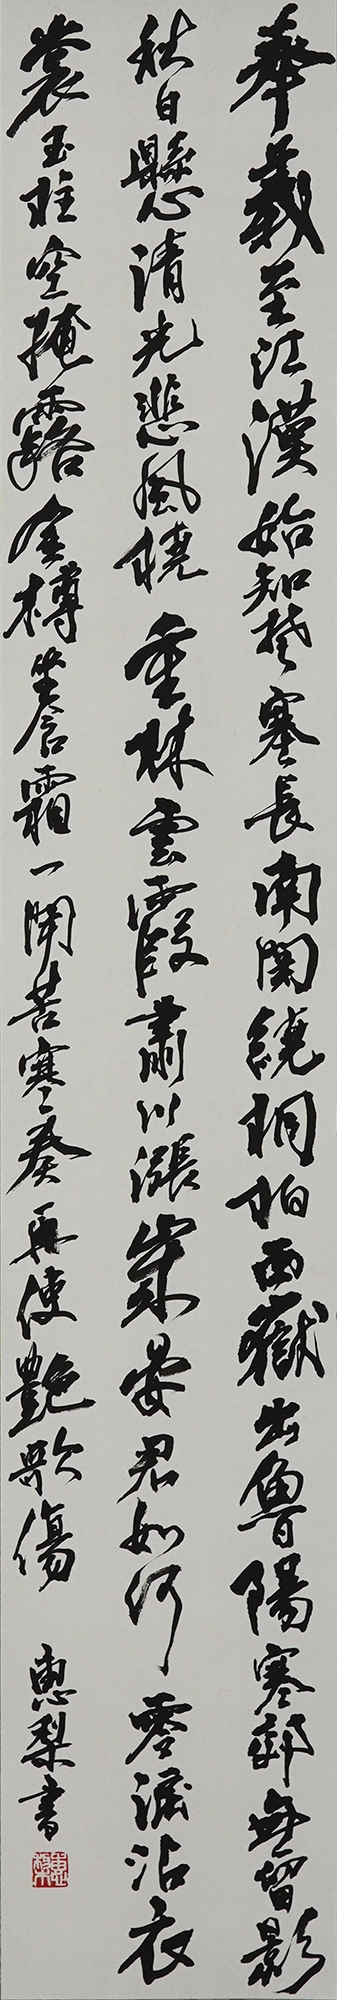 奉義至江漢始知楚塞長南關繞桐柏西嶽出魯陽寒郊無留影
秋日懸清光悲風橈重林雲霞肅川漲歲晏君如何零淚沾衣
裳玉柱空掩露金樽坐含霜一聞苦寒奏再使艶歌傷
惠梨書